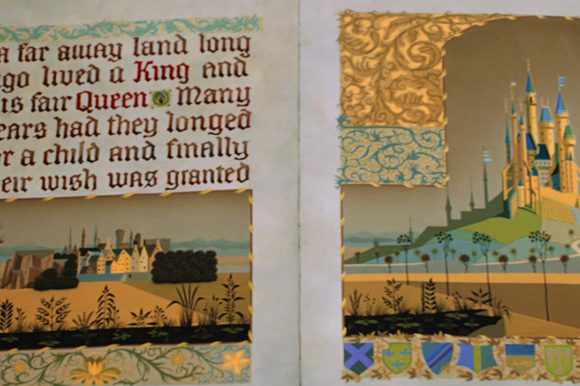 a far away land long
ago lived a King and
his fair Queen Many
years had they longed
for a child and finally
their wish was granted